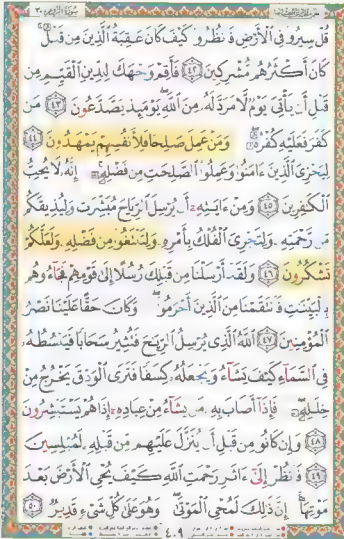 سورة الروم ٣٠
قل سيروا في الأرض فانظروا كيف كان عاقبة الذين من قبل
كان أكثرهم مشركين ٤٢ فأقم وجهك للدين القيم من
قبل أن يأتي يوم لا مرد له من الله يومئذ يصدعون ٤٣ من
كفر فعليه كفره ومن عمل صالحا فلأنفسهم يمهدون ٤٤
ليجزي الذين ءامنوا وعملوا الصالحات من فضله إنه لا يحب
الكافرين ٤٥ ومن ءاياته أن يرسل الرياح مبشرات وليذيقكم
من رحمته ولتجري الفلك بأمره ولتبتغوا من فضله ولعلكم
تشكرون ٤٦ ولقد أرسلنا من قبلك رسلا إلى قومهم فجاءوهم
بالبينات فانتقمنا من الذين أجرموا وكان حقا علينا نصر
المؤمنين ٤٧ الله الذي يرسل الرياح فتثير سحابا فيبسطه
في السماء كيف يشاء ويجعله كسفا فترى الودق يخرج من
خلاله فإذا أصاب به من يشاء من عباده إذا هم يستبشرون
٤٨ وإن كانوا من قبل أن ينزل عليهم من قبله لمبلسين
٤٩ فانظر إلى ءاثار رحمت الله كيف يحي الأرض بعد
موتها إن ذلك لمحي الموتى وهو على كل شيء قدير ٥٠
٤٠٩